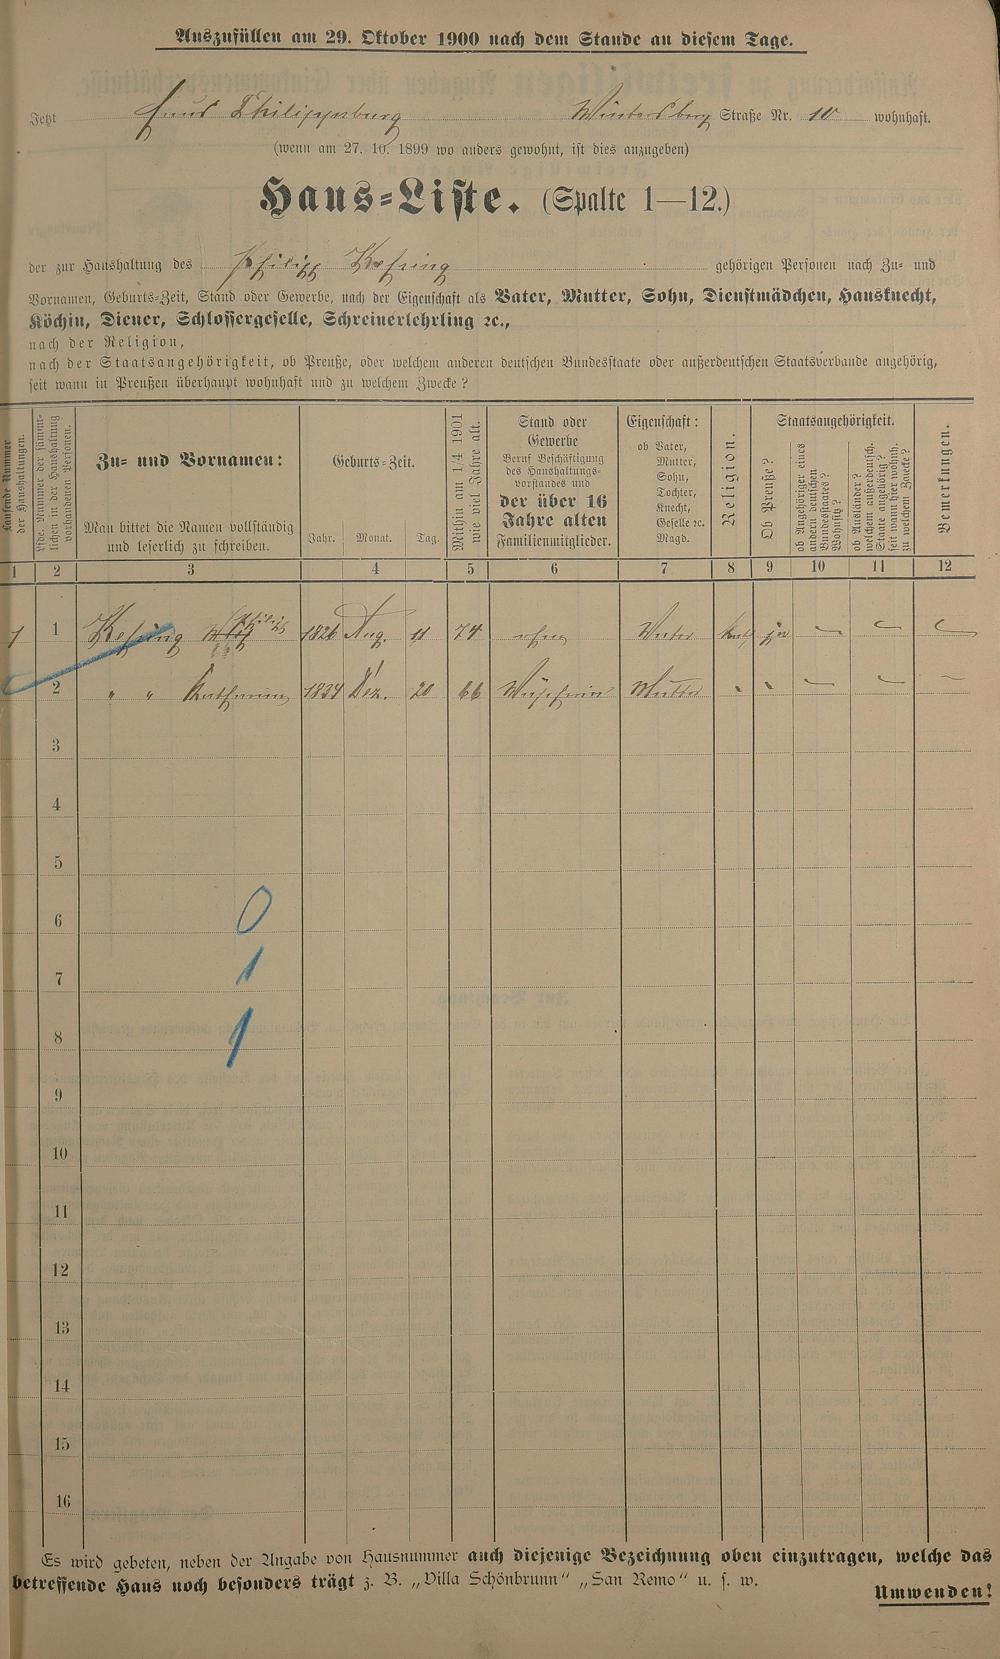 Auszufüllen am 29. Oktober 1900 nach dem Stande an diesem Tage.
Jetzt Haus Philippsburg Wintersberg Straße Nr. 10 wohnhaft.
(wenn am 27. 10. 1899 wo anders gewohnt, ist dies anzugeben)
Haus-Liste. (Spalte 1—12.)
der zur Haushaltung des Philipp gehörigen Personen nach Zu- und
Vornamen, Geburts-Zeit, Stand oder Gewerbe, nach der Eigenschaft als Vater, Mutter, Sohn, Dienstmädchen, Hausknecht,
Köchin, Diener, Schlossergeselle, Schreinerlehrling ꝛc.,
nach der Religion,
nach der Staatsangehörigkeit, ob Preuße, oder welchem anderen deutschen Bundesstaate oder außerdeutschen Staatsverbande angehörig,
seit wann in Preußen überhaupt wohnhaft und zu welchem Zwecke?
Laufende Nummer
der Haushaltungen.
Lfde. Nummer der sämmt-
lichen in der Haushaltung
vorhandenen Personen.
Zu- und Vornamen:
Man bittet die Namen vollständig
und leserlich zu schreiben.
Geburts-Zeit.
Jahr. Monat. Tag.
Mithin am 1/4 1901
wie viel Jahre alt.
Stand oder
Gewerbe
Beruf Beschäftigung
des Haushaltungs-
vorstandes und
der über 16
Jahre alten
Familienmitglieder.
Eigenschaft:
ob Vater,
Mutter,
Sohn,
Tochter,
Knecht,
Geselle ꝛc.
Magd.
Religion.
Staatsangehörigkeit.
Ob Preuße?
ob Angehöriger eines
andern deutschen
Bundesstaates?
Wohnsitz?
ob Ausländer?
welchem außerdeutsch.
Staate angehörig?
seit wann hier wohnh.
zu welchem Zwecke?
Bemerkungen.
1 2 3 4 5 6 7 8 9 10 11 12
1 1 Philipp 1826 Aug. 11 74 ohne Vater kath ja — — —
2 " " Katharina 1834 Dez. 20 66 Mutter " " — — —
3
4
5
6 0
7 1
8 1
9
10
11
12
13
14
15
16
Es wird gebeten, neben der Angabe von Hausnummer auch diejenige Bezeichnung oben einzutragen, welche das
betreffende Haus noch besonders trägt z. B. „Villa Schönbrunn" „San Remo" u. s. w.
Umwenden!